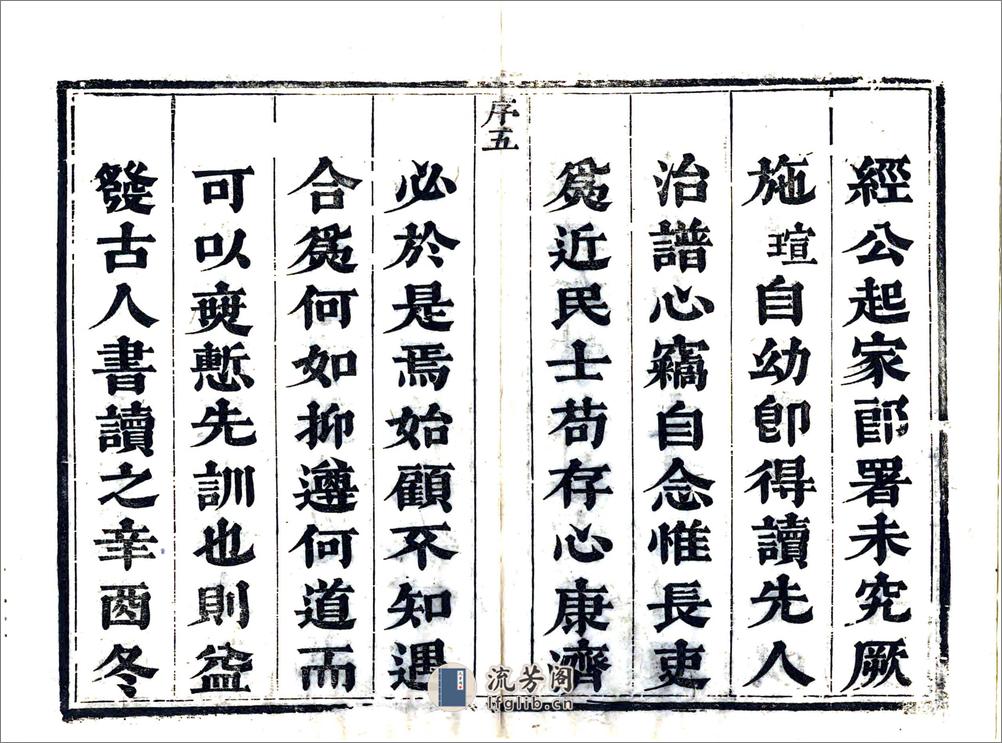 經公起家郎署未究厥
施瑄自幼卽得讀先人
治譜心竊自念惟長吏
爲近民士苟存心康濟
序五
必於是焉始顧不知遇
合爲何如抑遵何道而
可以無慙先訓也則益
發古人書讀之辛酉冬
流芳阁
lfglib.cn